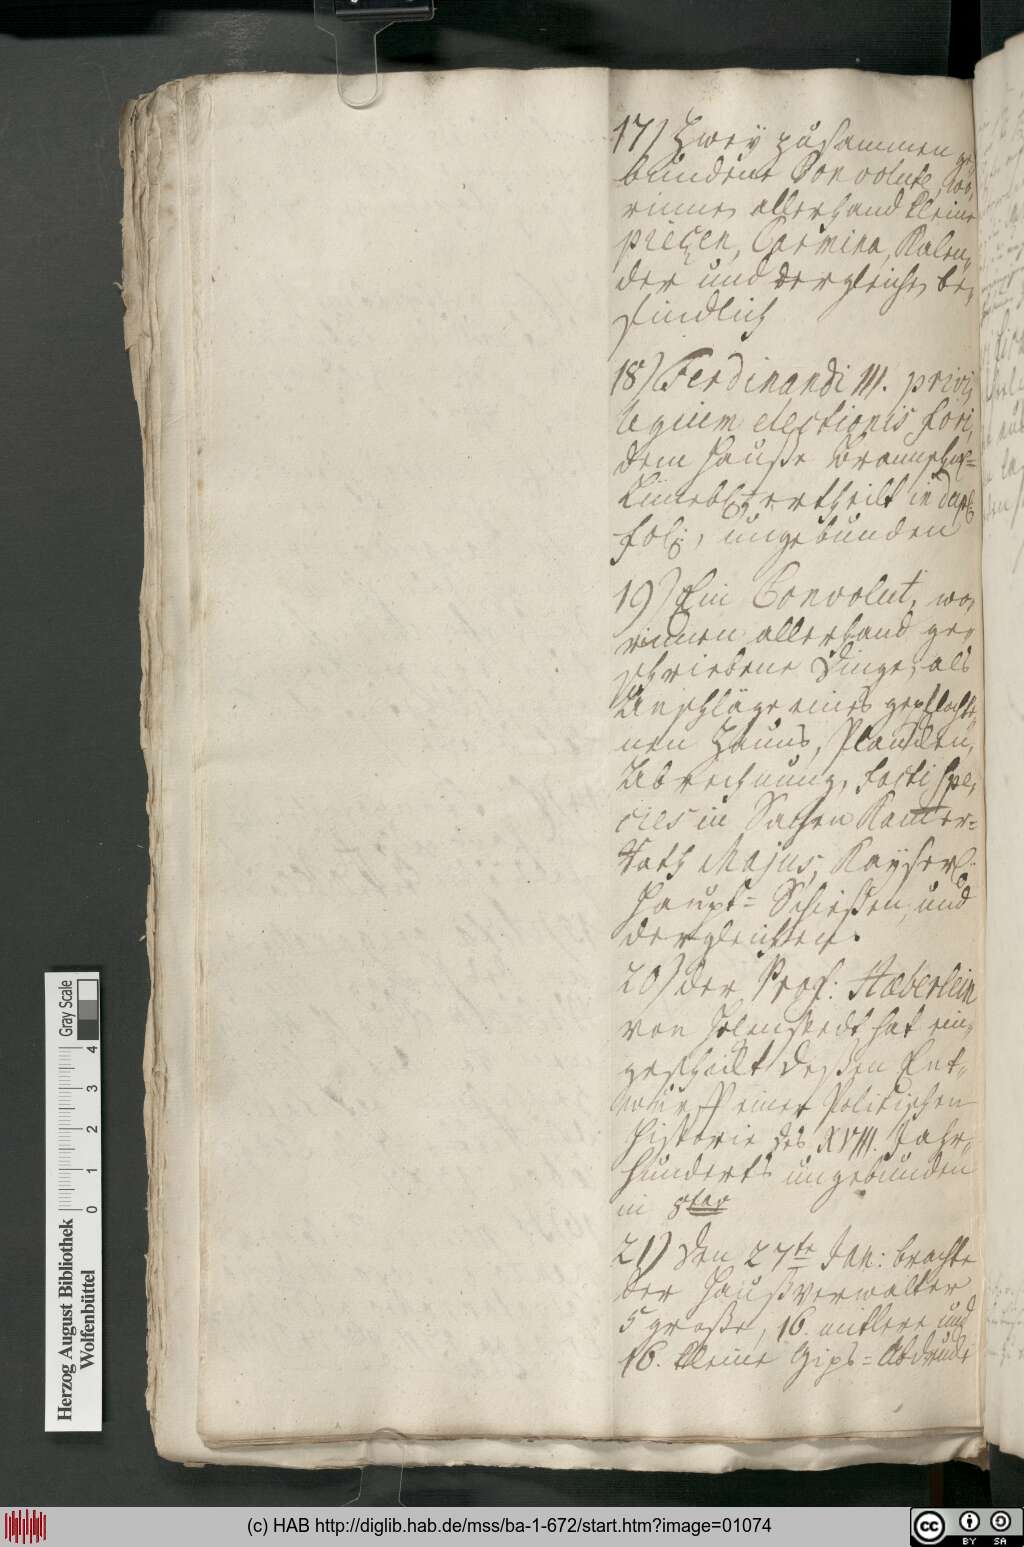 17) Zwey zusammen ge,,
bundene Convolute, wo,,
rinnen allerhand kleine
pieçen, Carmina, Kalen,,
der und dergleichen be,,
findlich
18) Ferdinandi III. privi,,
legium electionis fori,
dem Hauße Braunschw=
Lüneb: ertheilt in dupl:
fol:, ungebunden
19) Ein Convolut, wo,,
rinnen allerhand ge,,
schriebene Dinge, als
Anschläge eines geflochte,,
nen Zauns,
Abrechnung, facti spe,,
cies in Sachen Kammer=
Rath Majus, Kayserl:
Haupt= Schießen, und
dergleichen.
20) der Prof: Hæberlein
von Helmstedt hat ein,,
geschickt deßen Ent,,
wurff einer Politischen
Historie des XVIII. Jahr,,
hunderts ungebunden
in 8ter
21) Den 27te Jan: brachte
der Haußverwalter
5 große, 16. mitlere und
16. kleine Gips=Abdrücke
Herzog August Bibliothek
Wolfenbüttel
0 1 2 3 4
Gray Scale
(c) HAB http://diglib.hab.de/mss/ba-1-672/start.htm?image=01074
cc BY SA